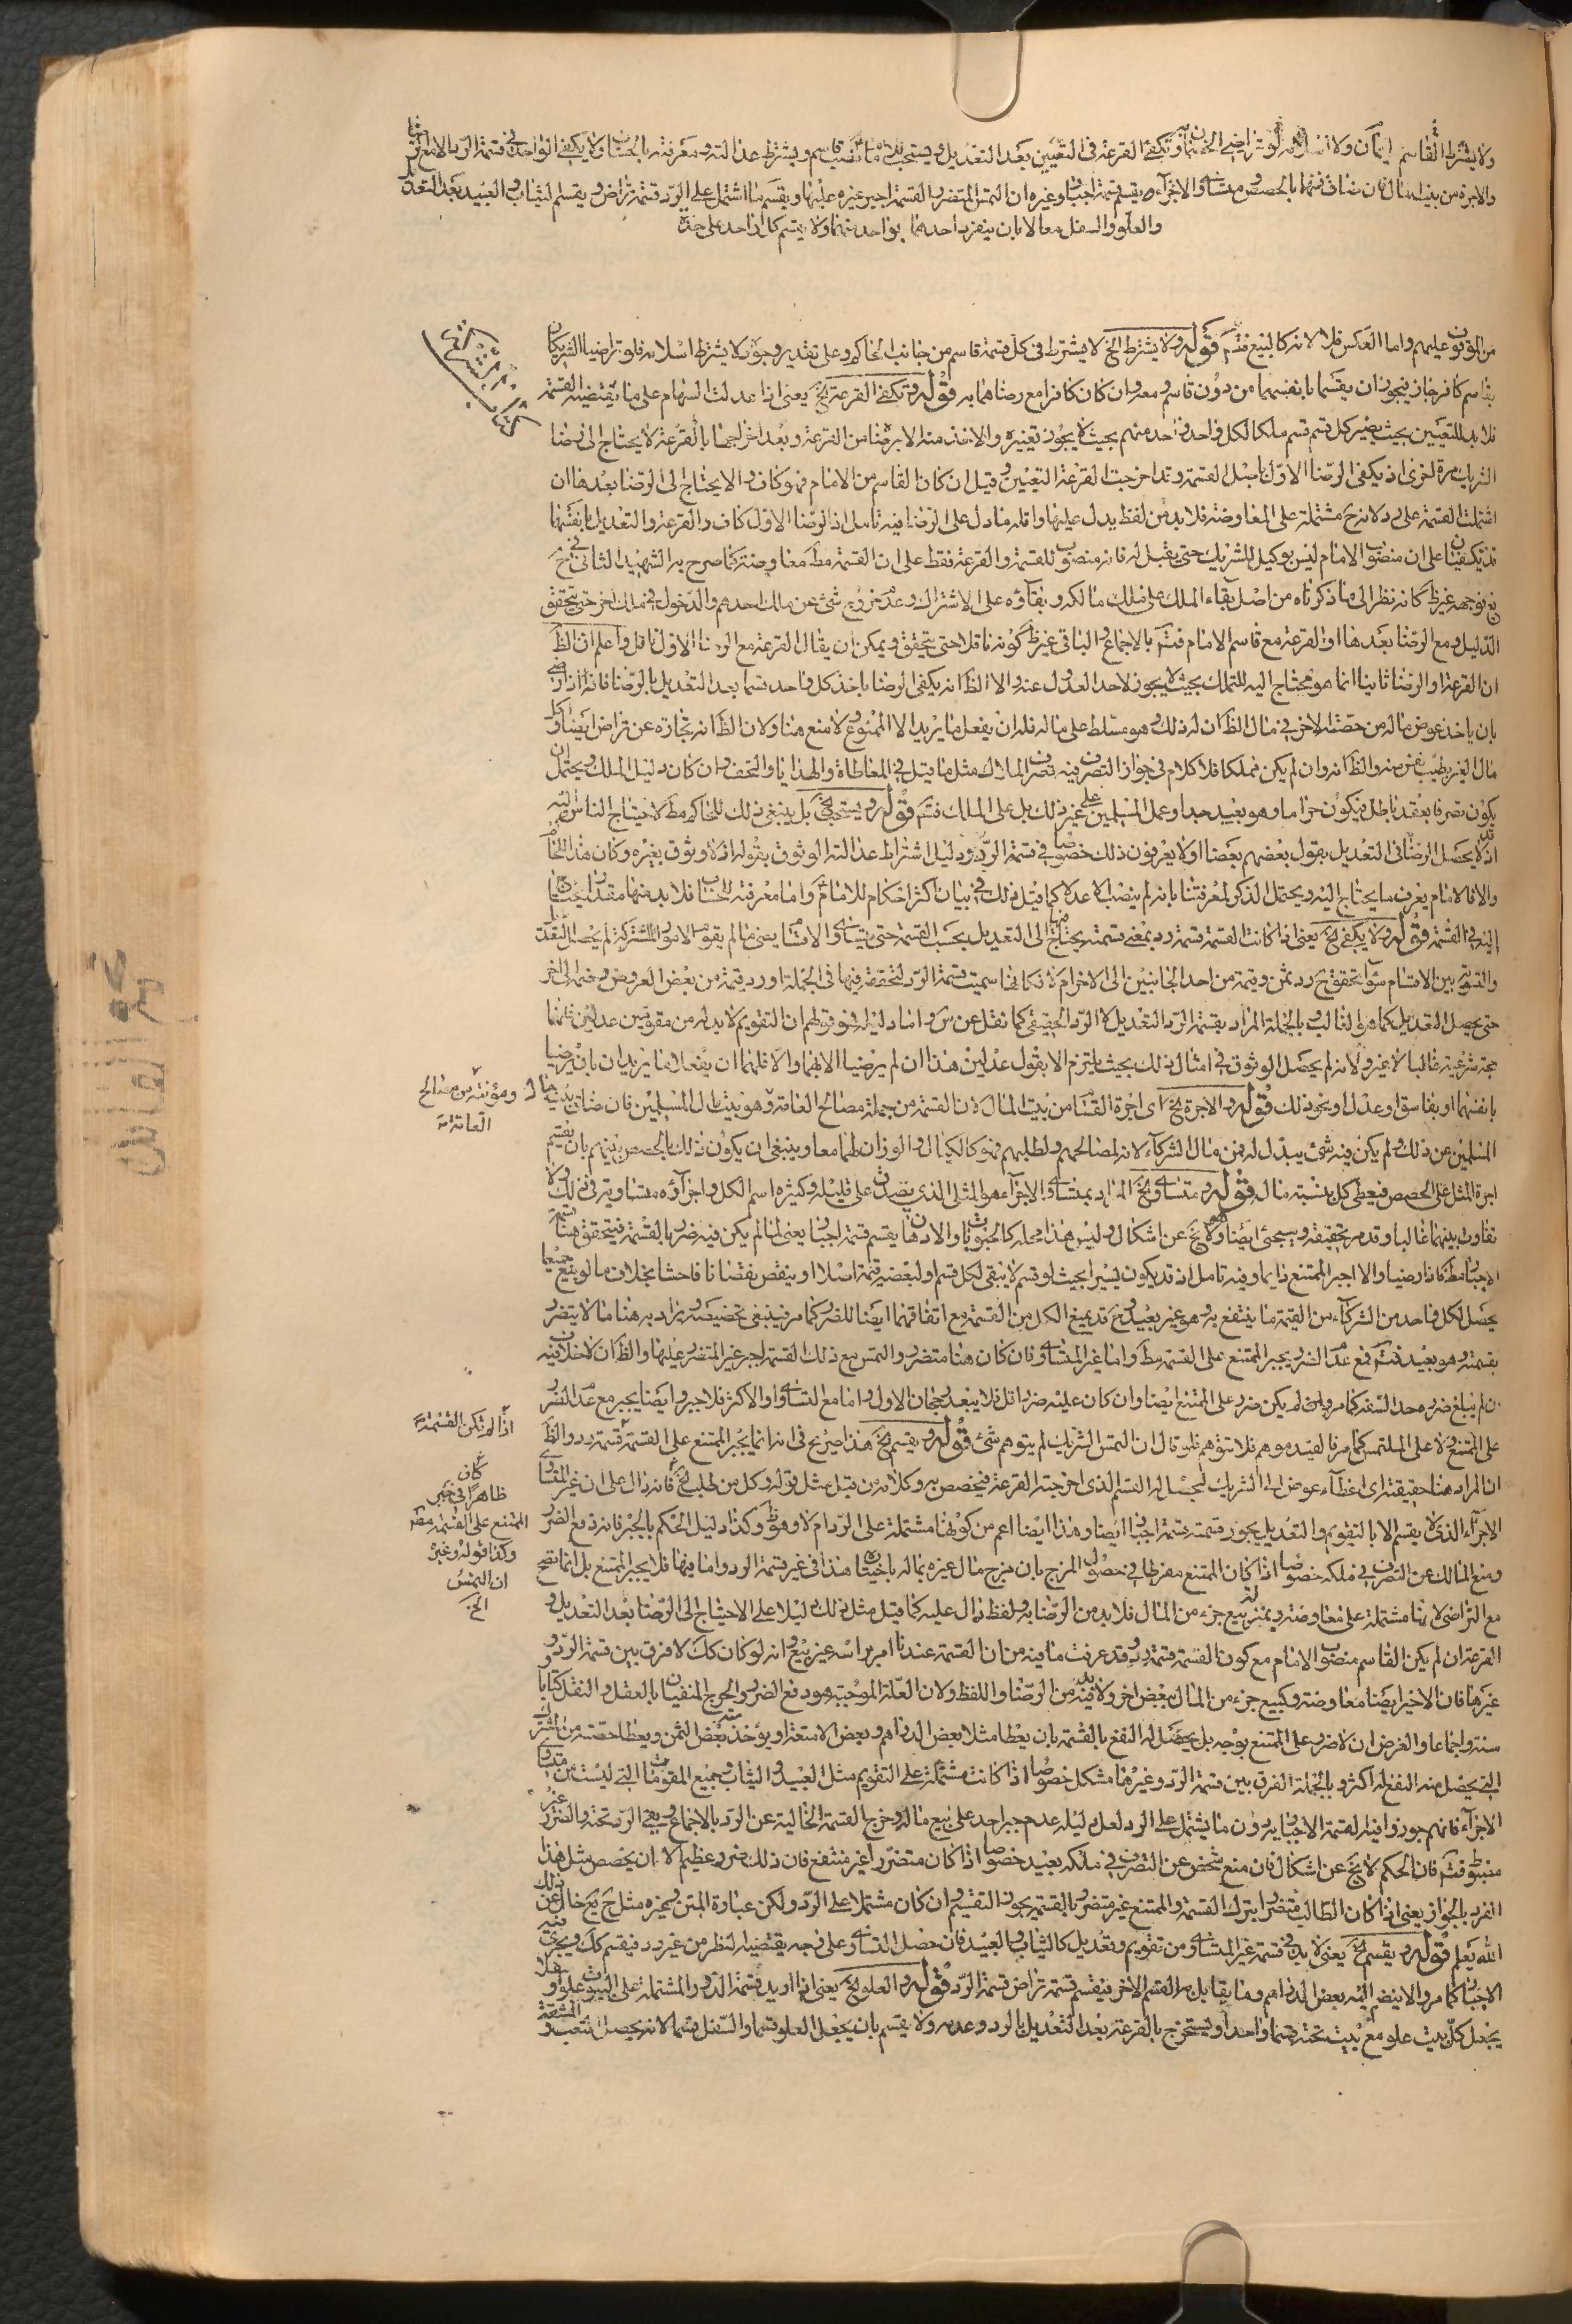 ولا يشترط القاسم ايمان ولا اسلام لو تراضى الخصمان به وتكفى القرعة فى التعيين بعد التعديل ويستحب للامام نصب قاسم ويشترط عدالته ومعرفته بالحساب ولا يكفى الواحد فى قسمة الرد الا مع الرضا
والاجرة من بيت المال فان ضاق فمنهما بالحصص ومتساوى الاجزاء يقسم قسمة اجبار وغيره ان التمس المتضرر القسمة اجبر غيره عليها ويقسم ما اشتمل على الرد قسمة تراض ويقسم الثياب والعبيد بعد التعديل
والعلو والسفل معا لا بان ينفرد احدهما بواحد منهما ولا يقسم كل واحد على حدة
كتاب الشركة
من الوقوف عليهم واما العكس فلا لانه كالبيع فتأمل قوله ولا يشترط الخ لا يشترط فى كل قسمة قاسم من جانب الحاكم وعلى تقدير وجوده لا يشترط اسلامه فلو تراضيا الشريكان
بقاسم كافر جاز فيجوز ان يقسما بانفسهما من دون قاسم ومعه وان كان كافرا مع رضاهما به قوله وتكفى القرعة الخ يعنى اذا عدلت السهام على ما يقتضيه القسمة
فلا بد للتعيين بحيث يصير كل قسم قسم ملكا لكل واحد واحد منهم بحيث لا يجوز تغييره والاخذ منه الا برضا من القرعة وبعد اخراجها بالقرعة لا يحتاج الى رضا
الشريك مرة اخرى اذ يكفى الرضا الاول ما قبل القسمة وقد اخرجت القرعة التعيين وقيل ان كان القاسم من الامام فهو كاف والا يحتاج الى الرضا بعدها ان
اشتملت القسمة على رد لانه ح مشتملة على المعاوضة فلا بد من لفظ يدل عليها واقله ما دل على الرضا فيه تامل اذ الرضا الاول كاف والقرعة والتعديل بانفسهما
قد تكفيان على ان منصوب الامام ليس بوكيل للشريك حتى يقبل له فانه منصوب للقسمة والقرعة فقط على ان القسمة مط معاوضة كما صرح به الشهيد الثانى فى ح
فتوجهه غير ظ كانه نظر الى ما ذكرناه من اصل بقاء الملك على ملك مالكه وبقاؤه على الاشتراك وعدم خروج شئ عن مالك احدهم والدخول فى ملك اخر حتى يتحقق
الدليل ومع الرضا بعدها او القرعة مع قاسم الامام فتم بالاجماع والباقى غير ظ كونه ناقلا حتى يتحقق ويمكن ان يقال القرعة مع الرضا الاول ناقل واعلم ان الظ
ان القرعة او الرضا ثانيا انما هو محتاج اليه للتملك بحيث لا يجوز لاحد العدول عنه والا الظ انه يكفى الرضا باخذ كل واحد قسما بعد التعديل بالرضا فانه اذا رضى
بان ياخذ عوض ماله من حصته الاخر فى مال الظ ان له ذلك وهو مسلط على ماله فله ان يفعل ما يريد الا الممنوع ولا منع هنا ولان الظ انه تجارة عن تراض ايضا واكل
مال الغير بطيب نفس منه والظ انه وان لم يكن تملكا فلا كلام فى جواز التصرف فيه تصرف الملاك مثل ما قيل فى المعاطاة والهدايا والتحف وان كان دليل الملك ويحتمل ان
يكون تصرفا بعقد باطل فيكون حراما وهو بعيد جدا وعمل المسلمين على غير ذلك بل على الملك فتم قوله ويستحب الخ بل ينبغى ذلك للحاكم مط لاحتياج الناس اليه
اذ قد لا يحصل الرضا فى التعديل بقول بعضهم بعضا او لا يعرفون ذلك خصوصا فى قسمة الرد ودليل اشتراط عدالته الوثوق بقوله اذ لا وثوق بغيره وكان هذا للخاص
والا فالامام يعرف ما يحتاج اليه ويحتمل الذكر لمعرفتنا بانه لم ينصب الا عدلا كما قيل ذلك فى بيان اكثر احكام للامام واما معرفته للحساب فلا بد منها مقدار ما يحتاج
اليه فى القسمة قوله ولا يكفى الخ يعنى اذا كانت القسمة قسمة رد بمعنى قسمة يحتاج فيها الى التعديل بحسب القسمة حتى يتساوى الاقسام يعنى ما لم يقوم الامور المشتركة لم يحصل التعديل
والتسوية بين الاقسام سواء تحقق ح رد ثمن وقيمة من احد الجانبين الى الاخر ام لا فكانها سميت قسمة الرد لتحققه فيها فى الجملة او رد قيمة من بعض العروض وضمه الى اخر
حتى يحصل التعديل كما هو الغالب وبالجملة المراد بقسمة الرد التعديل لا الرد الحقيقى كما نقل عن س واما دليله فهو قولهم ان التقويم لا بد له من مقومين عدلين فانهما
حجة شرعية غالبا لا غير ولانه لم يحصل الوثوق فى امثال ذلك بحيث يلتزم الا بقول عدلين هذا ان لم يرضيا الا بهما والا فلهما ان يفعلا ما يريدان بان يرضيا
بانفسهما او بفاسق او عدل او نحو ذلك قوله والاجرة الخ اى اجرة القسام من بيت المال لان القسمة من جملة مصالح العامة وهو بيت مال المسلمين فان ضاق بيت مال
ومؤنته من مصالح
العامة
المسلمين عن ذلك ولم يكن فيه شئ يبذل له فمن مال الشركاء لانه لمصالحهم ولطلبهم فهو كالكيال والوزان لهما معا وينبغى ان يكون ذلك بالحصص بينهم بان يقسم
اجرة المثل على الحصص فيعطى كل بنسبة مال قوله ومتساوى الخ المراد بمتساوى الاجزاء هو المثلى الذى يصدق على قليله وكثيره اسم الكل واجزاؤه متساوية فى ذلك ولا
تفاوت بينهما غالبا وقد مر تحقيقه وسيجئ ايضا ولا يخ عن اشكال وليس هذا محله كالحبوب والادهان يقسم قسمة اجبار يعنى لما لم يكن فيه ضرر بالقسمة فيتحقق هنا قسمة
الاجبار مط فاذا رضيا والا اجبر الممتنع دائما وفيه تامل اذ قد يكون يسيرا بحيث لو قسم لا يبقى لكل قسم او لبعضه قيمة اصلا او ينقص نقصانا فاحشا بخلاف ما لو بيع جميعا
يحصل لكل واحد من الشركاء من القيمة ما ينتفع به وهو غير بعيد وح قد يمنع الكل من القسمة مع اتفاقهما ايضا للضرر كما مر فينبغى تخصيصه يراد به هنا ما لا يتضرر
بقسمته وهو بعيد فتم فمع عدم الضرر يجبر الممتنع على القسمة مط واما غير المتساوى فان كان هنا متضرر والتمس مع ذلك القسمة اجبر غير المتضرر عليها والظ ان لا خلاف فيه
ان لم يبلغ ضرره حد السفه كما مر وان لم يكن ضرر على الممتنع ايضا وان كان عليه ضرر اقل فلا يبعد رجحان الاول واما مع التساوى او الاكثر فلا جبر وايضا يجبر مع عدم الضرر
على الممتنع ولا على الملتمس كما مر فالقيد موهم فلا تتوهم فلو قال ان التمس الشريك لم يتوهم شئ قوله ويقسم الخ هذا صريح فى انه انما يجبر الممتنع على القسمة قسمة رد والظ
اذا لم تكن القسمة
ان المراد هنا حقيقته اى اعطاء عوض الى الشريك ليحصل له القسم الذى اخرجته القرعة فيخصص به وكلامه من قبل مثل قوله وكل من طلب الخ فانه دال على ان غير المتساوى
كان
ظاهرا فى جبر
الممتنع على القسمة مط
وكذا قوله وغيره
ان التمس
الخ
الاجزاء الذى لا يقسم الا بالتقويم والتعديل يجوز قسمته قسمة اجبار ايضا وهذا ايضا اعم من كونها مشتملة على الرد ام لا وهو ظ وكذا دليل الحكم بالجبر فانه دفع الضرر
ومنع المالك عن التصرف فى ملكه خصوصا اذا كان الممتنع مفرطا فى حصول المزج بان مزج مال غيره بماله باختياره هذا فى غير قسمة الرد واما فيها فلا يجبر الممتنع بل انما تصح
مع التراضى لانها مشتملة على معاوضة وبمنزلة بيع جزء من المال فلا بد من الرضا به ولفظ دال عليه كما قيل مثل ذلك دليلا على الاحتياج الى الرضا بعد التعديل و
القرعة ان لم يكن القاسم منصوب الامام مع كون القسمة قسمة رد وقد عرفت ما فيه من ان القسمة عندنا امر براسه غير بيع وانه لو كان كك لا فرق بين قسمة الرد و
غيرها فان الاخير ايضا معاوضة وكبيع جزء من المال ببعض اخر ولا بد فيه من الرضا واللفظ ولان العلة الموجبة هو دفع الضرر والحرج المنفيان بالعقل والنقل كتابا و
سنة واجماعا والفرض ان لا ضرر على الممتنع بوجه بل يحصل له النفع بالقسمة بان يعطا مثلا بعض الدراهم وبعض الامتعة او يؤخذ منه بعض الثمن ويعطا حصته من المشترك
التى يحصل منه النفع له اكثر وبالجملة الفرق بين قسمة الرد وغيرها مشكل خصوصا اذا كانت مشتملة على التقويم مثل العبيد والثياب وجميع المقومات التى ليست من متساوى
الاجزاء فانهم جوزوا فيها القسمة الاجبارية دون ما يشتمل على الرد لعل دليله عدم جبر احد على بيع ماله وخرج القسمة الخالية عن الرد بالاجماع وبقى الرد تحته والضرر غير
منضبط فتم فان الحكم لا يخ عن اشكال فان منع شخص عن التصرف فى ملكه بعيد خصوصا اذا كان متضررا غير منتفع فان ذلك ضرر عظيم الا ان يخصص مثل هذا
الفرد بالجواز يعنى اذا كان الطالب متضررا بترك القسمة والممتنع غير متضرر بالقسمة يجوز التقسيم وان كان مشتملا على الرد ولكن عبارة المتن وغيره مثل ح يع خال عن ذلك
الله يعلم قوله ويقسم الخ يعنى لا بد فى قسمة غير المتساوى من تقويم وتعديل كالثياب والعبيد فان حصل التساوى على وجه يقتضيه النظر من غير رد فيقسم كك ويجرى فيه
الاجبار كما مر والا ينضم اليه بعض الدراهم وما يقابل به القسم الاخر فيقسم قسمة تراض قسمة الرد قوله والعلو الخ يعنى اذا اريد قسمة الدور المشتملة على البيوت علوا و سفلا
يجعل كل بيت علو مع بيت تحته قسما واحدا ويستخرج بالقرعة بعد التعديل بالرد وعدمه ولا يقسم بان يجعل العلو قسما والسفل قسما لانه يحصل التعب والمشقة